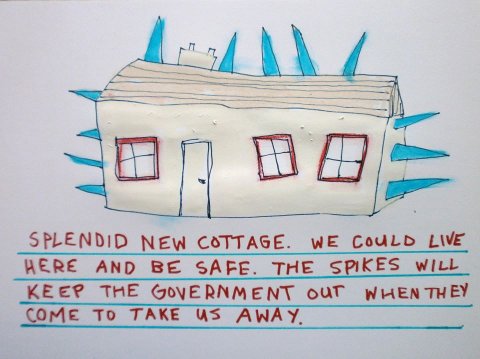 SPLENDID NEW COTTAGE. WE COULD LIVE
HERE AND BE SAFE. THE SPIKES WILL
KEEP THE GOVERNMENT OUT WHEN THEY
COME TO TAKE US AWAY.